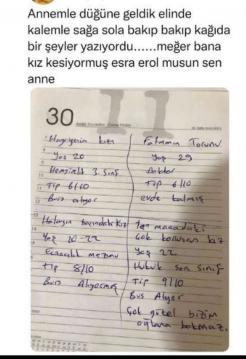 Annemle düğüne geldik elinde
kalemle sağa sola bakıp bakıp kağıda
bir şeyler yazıyordu......meğer bana
kız kesiyormuş esra erol musun sen
anne
30
11
Hayriyenin kızı
Yaş 20
Hemşirelik 3. Sınıf
Tip 6/10
Burs alıyor
Halanın
Yaş 20-22
Eczacılık mezunu
Tip 8/10
Burs Alıyormuş
Fatmanın Torunu
Yaş 29
Doktor
Tip 6/10
evde kalmış
masadaki
Çok konuşan kız
Yaş 22
Hukuk Son Sınıf
Tip 9/10
Burs Alıyor
Çok güzel bizim
oğlana bakmaz.